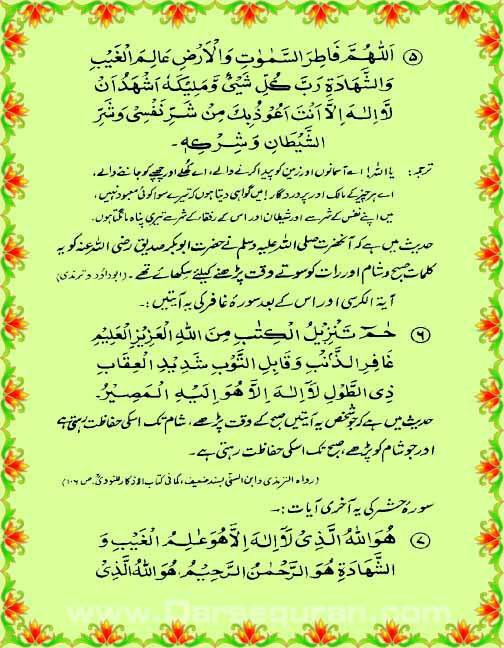 ۵ اَللّٰهُمَّ فَاطِرَ السَّمٰوٰتِ وَالْاَرْضِ عَالِمَ الْغَيْبِ
وَالشَّهَادَةِ رَبَّ كُلِّ شَيْئٍ وَّمَلِيْكَهٗ اَشْهَدُ اَنْ
لَّا اِلٰهَ اِلَّا اَنْتَ اَعُوْذُ بِكَ مِنْ شَرِّ نَفْسِيْ وَشَرِّ
الشَّيْطَانِ وَشِرْكِهٖ۔
ترجمہ: یا اللہ! اے آسمانوں اور زمین کو پیدا کرنے والے، اے کھلے اور چھپے کو جاننے والے،
اے ہر چیز کے مالک اور پروردگار! میں گواہی دیتا ہوں کہ تیرے سوا کوئی معبود نہیں،
میں اپنے نفس کے شر سے اور شیطان اور اس کے رفقاء کے شر سے تیری پناہ مانگتا ہوں۔
حدیث میں ہے کہ آنحضرت صلی اللہ علیہ وسلم نے حضرت ابوبکر صدیق رضی اللہ عنہ کو یہ
کلمات صبح و شام اور رات کو سوتے وقت پڑھنے کیلئے سکھائے تھے۔ (ابوداؤد و ترمذی)
آیۃ الکرسی اور اس کے بعد سورۂ غافر کی یہ آیتیں:۔
۶ حٰمٓ تَنْزِيْلُ الْكِتٰبِ مِنَ اللّٰهِ الْعَزِيْزِ الْعَلِيْمِ
غَافِرِ الذَّنْبِ وَقَابِلِ التَّوْبِ شَدِيْدِ الْعِقَابِ
ذِى الطَّوْلِ لَآ اِلٰهَ اِلَّا هُوَ اِلَيْهِ الْمَصِيْرُ۔
حدیث میں ہے کہ جو شخص یہ آیتیں صبح کے وقت پڑھے، شام تک اسکی حفاظت رہتی ہے
اور جو شام کو پڑھے، صبح تک اسکی حفاظت رہتی ہے۔
(رواہ الترمذی وابن السنی بسند ضعیف، کمافی کتاب الاذکار للنووی ص ۱۰۶)
سورۂ حشر کی یہ آخری آیات:۔
۷ هُوَ اللّٰهُ الَّذِىْ لَآ اِلٰهَ اِلَّا هُوَ عٰلِمُ الْغَيْبِ وَ
الشَّهَادَةِ هُوَ الرَّحْمٰنُ الرَّحِيْمُ، هُوَ اللّٰهُ الَّذِىْ
www.Darsequran.com